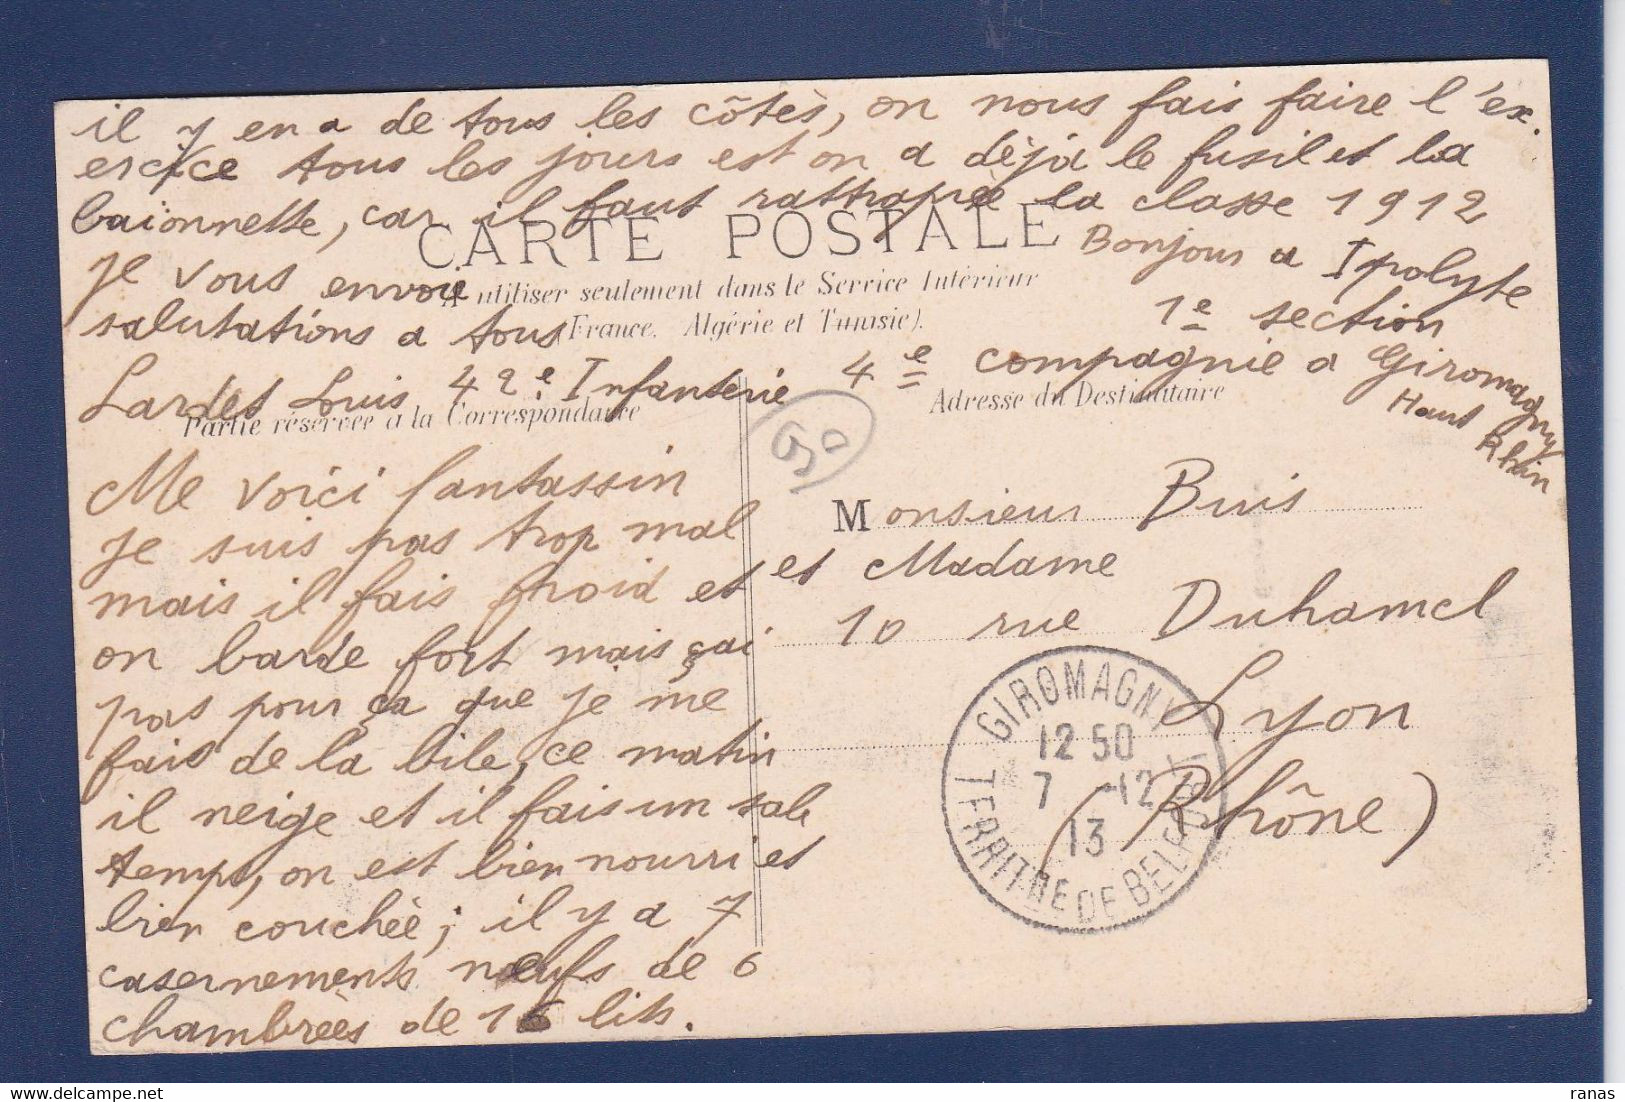 il y en a de tous les côtès, on nous fais faire l'ex.
ercice tous les jours est on a dèjà le fusil et la
baïonnette, car il faut rattrapèe la classe 1912
CARTE POSTALE
Bonjour a Ipolyte
je vous envoie
A utiliser seulement dans le Service Intérieur
1e section
salutations a tous
(France, Algérie et Tunisie).
Lardet Louis 42e Infanterie 4e compagnie a Giromagny
Haut Rhin
Partie réservée à la Correspondance
Adresse du Destinataire
50
Me voici fantassin
je suis pas trop mal
mais il fais froid et
on barde fort mais çai
pas pour ça que je me
fais de la bile, ce matin
il neige et il fais un sale
temps, on est bien nourri et
bien couchèe; il y a 7
casernements nœufs de 6
chambrèes de 16 lits.
Monsieur Buis
et Madame
10 rue Duhamel
Lyon
(Rhône)
GIROMAGNY
12 50
7 -12
13
TERRITRE DE BELFORT
ranas